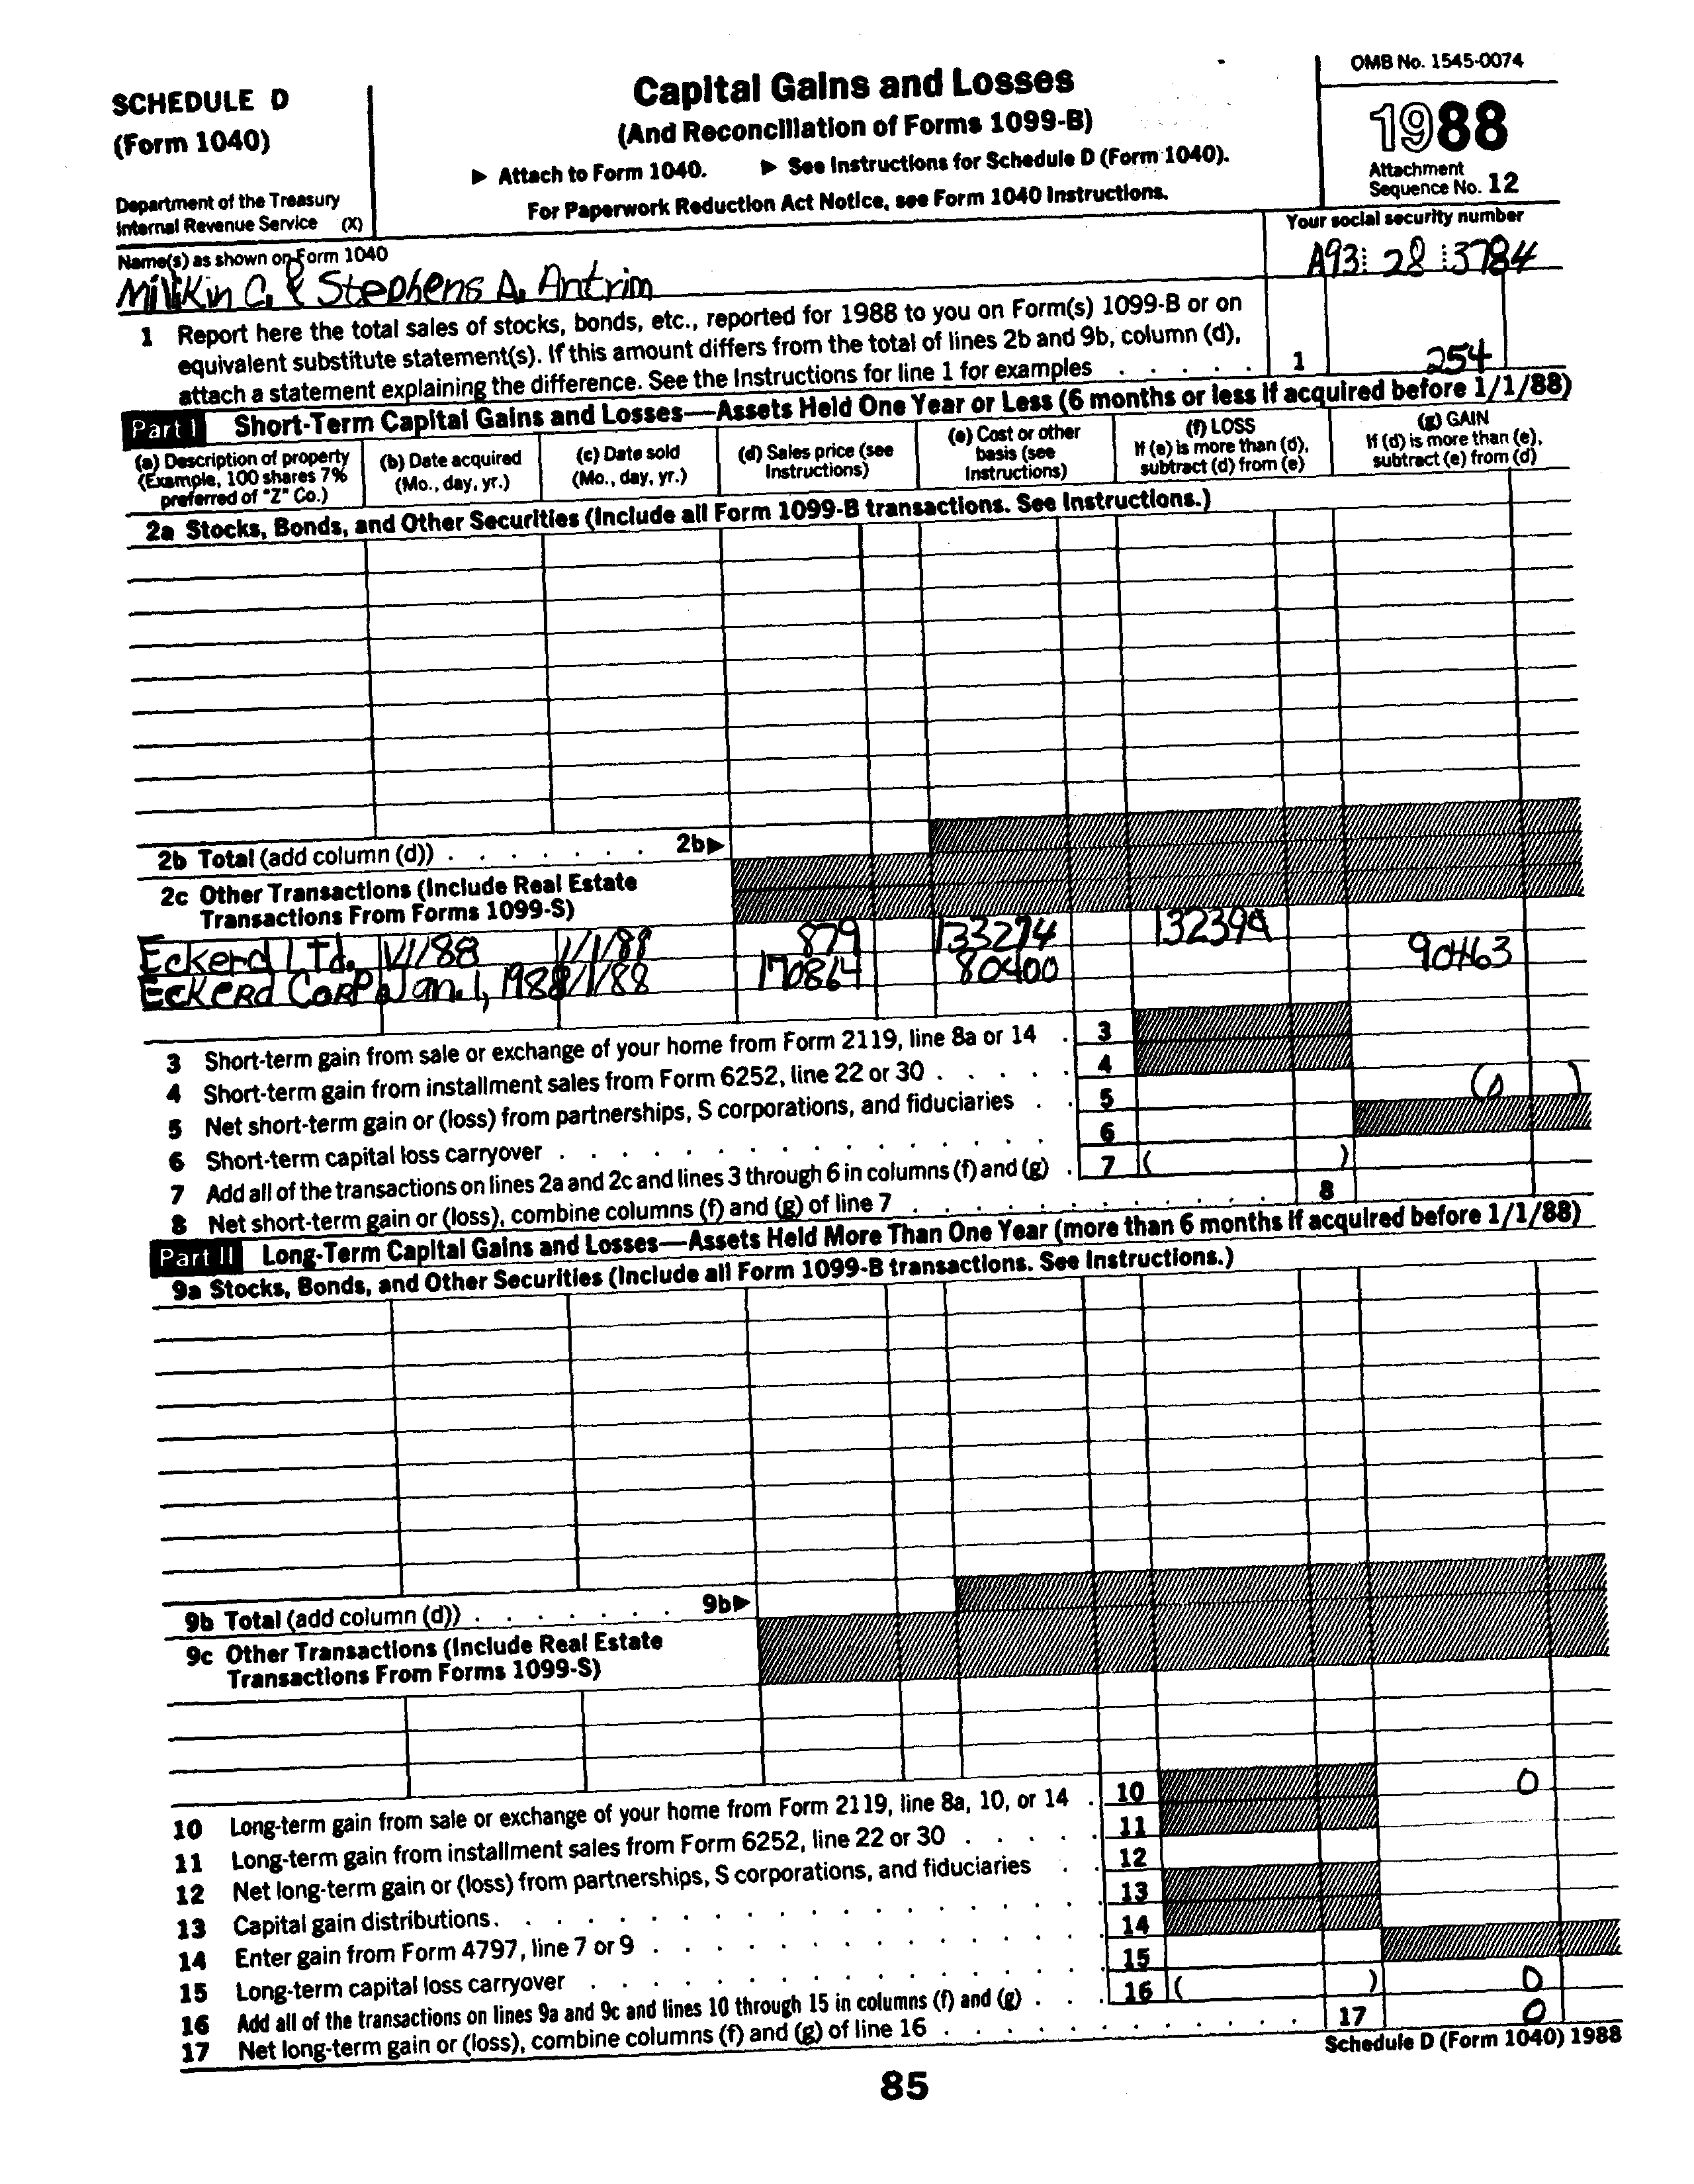 SCHEDULE D
(Form 1040)
Department of the Treasury
Internal Revenue Service (X)
Capital Gains and Losses
(And Reconciliation of Forms 1099-B)
▶ Attach to Form 1040. ▶ See Instructions for Schedule D (Form 1040).
For Paperwork Reduction Act Notice, see Form 1040 Instructions.
OMB No. 1545-0074
1988
Attachment
Sequence No. 12
Name(s) as shown on Form 1040
Millikin C. & Stephens A. Antrim
Your social security number
A93 28 3784
1 Report here the total sales of stocks, bonds, etc., reported for 1988 to you on Form(s) 1099-B or on
equivalent substitute statement(s). If this amount differs from the total of lines 2b and 9b, column (d),
attach a statement explaining the difference. See the Instructions for line 1 for examples . . . . . 1 254
Part I Short-Term Capital Gains and Losses—Assets Held One Year or Less (6 months or less if acquired before 1/1/88)
(a) Description of property
(Example, 100 shares 7%
preferred of "Z" Co.)
(b) Date acquired
(Mo., day, yr.)
(c) Date sold
(Mo., day, yr.)
(d) Sales price (see
Instructions)
(e) Cost or other
basis (see
Instructions)
(f) LOSS
If (e) is more than (d),
subtract (d) from (e)
(g) GAIN
If (d) is more than (e),
subtract (e) from (d)
2a Stocks, Bonds, and Other Securities (Include all Form 1099-B transactions. See Instructions.)
2b Total (add column (d)) . . . . . . . 2b▶
2c Other Transactions (Include Real Estate
Transactions From Forms 1099-S)
Eckerd LTd. 1/1/88 1/1/88 879 133274 132394
Eckerd Corp Jan. 1, 1988 1/1/88 170864 80400 90463
3 Short-term gain from sale or exchange of your home from Form 2119, line 8a or 14 . 3
4 Short-term gain from installment sales from Form 6252, line 22 or 30 . . . . . 4
5 Net short-term gain or (loss) from partnerships, S corporations, and fiduciaries . . 5 (0 )
6 Short-term capital loss carryover . . . . . . . . . . . . . . . 6
7 Add all of the transactions on lines 2a and 2c and lines 3 through 6 in columns (f) and (g) . 7 ( )
8 Net short-term gain or (loss), combine columns (f) and (g) of line 7 . . . . . . . . . . . 8
Part II Long-Term Capital Gains and Losses—Assets Held More Than One Year (more than 6 months if acquired before 1/1/88)
9a Stocks, Bonds, and Other Securities (Include all Form 1099-B transactions. See Instructions.)
9b Total (add column (d)) . . . . . . . 9b▶
9c Other Transactions (Include Real Estate
Transactions From Forms 1099-S)
10 Long-term gain from sale or exchange of your home from Form 2119, line 8a, 10, or 14 . 10 0
11 Long-term gain from installment sales from Form 6252, line 22 or 30 . . . . . 11
12 Net long-term gain or (loss) from partnerships, S corporations, and fiduciaries . . 12
13 Capital gain distributions. . . . . . . . . . . . . . . . . . . 13
14 Enter gain from Form 4797, line 7 or 9 . . . . . . . . . . . . . . 14
15 Long-term capital loss carryover . . . . . . . . . . . . . . . . 15
16 Add all of the transactions on lines 9a and 9c and lines 10 through 15 in columns (f) and (g) . . . 16 ( ) 0
17 Net long-term gain or (loss), combine columns (f) and (g) of line 16 . . . . . . . . . . . . 17 0
Schedule D (Form 1040) 1988
85